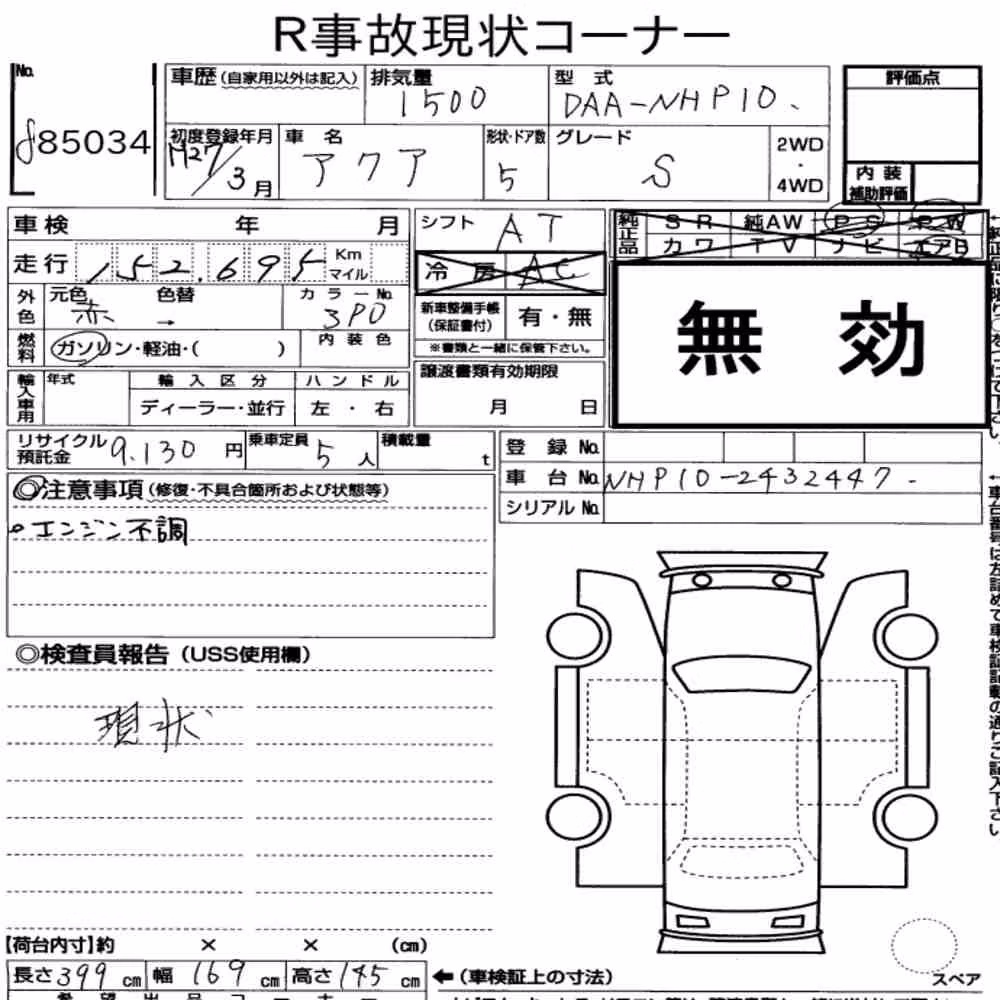 R事故現状コーナー
No.
885034
車歴(自家用以外は記入)
排気量
1500
型式
DAA-NHP10.
初度登録年月
H27/3月
車名
アクア
形状・ドア数
5
グレード
S
2WD
・
4WD
評価点
内装
補助評価
車検 年 月
走行 152,695 Km
マイル
外色
元色 赤
色替 →
カラーNo.
3P0
燃料
ガソリン・軽油・( )
内装色
輸入車用
年式
輸入区分
ディーラー・並行
ハンドル
左・右
シフト AT
冷房 AC
新車整備手帳
(保証書付)
有・無
※書類と一緒に保管下さい。
譲渡書類有効期限
月 日
純正品
SR 純AW PS PW
カワ TV ナビ エアB
無効
リサイクル預託金 9.130円
乗車定員 5人
積載量 t
登録No.
車台No. NHP10-2432447.
シリアルNo.
◎注意事項(修復・不具合箇所および状態等)
エンジン不調
◎検査員報告(USS使用欄)
現状
【荷台内寸】約 × × (cm)
長さ399cm 幅169cm 高さ145cm
←(車検証上の寸法)
スペア
←車台番号は左詰めで車検証記載の通りご記入下さい。